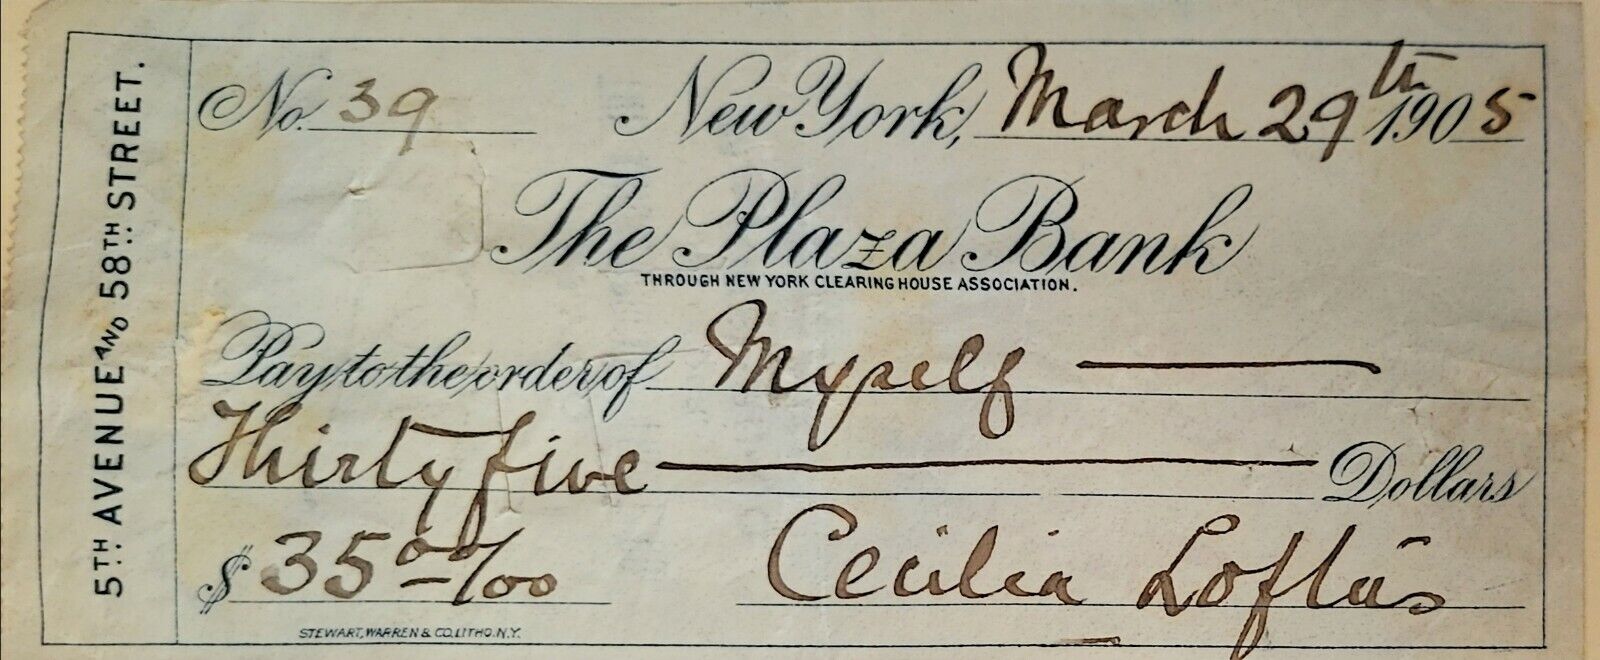 5TH AVENUE AND 58TH STREET.
No. 39 New York, March 29th 1905
The Plaza Bank
THROUGH NEW YORK CLEARING HOUSE ASSOCIATION.
Pay to the order of Myself
Thirty five Dollars
$ 35 00/100 Cecilia Loftus
STEWART, WARREN & CO. LITHO. N.Y.